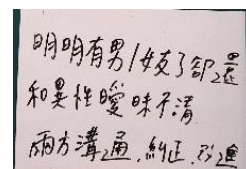 明明有男/女友了卻還
和異性曖昧不清
兩方溝通、糾正、改進